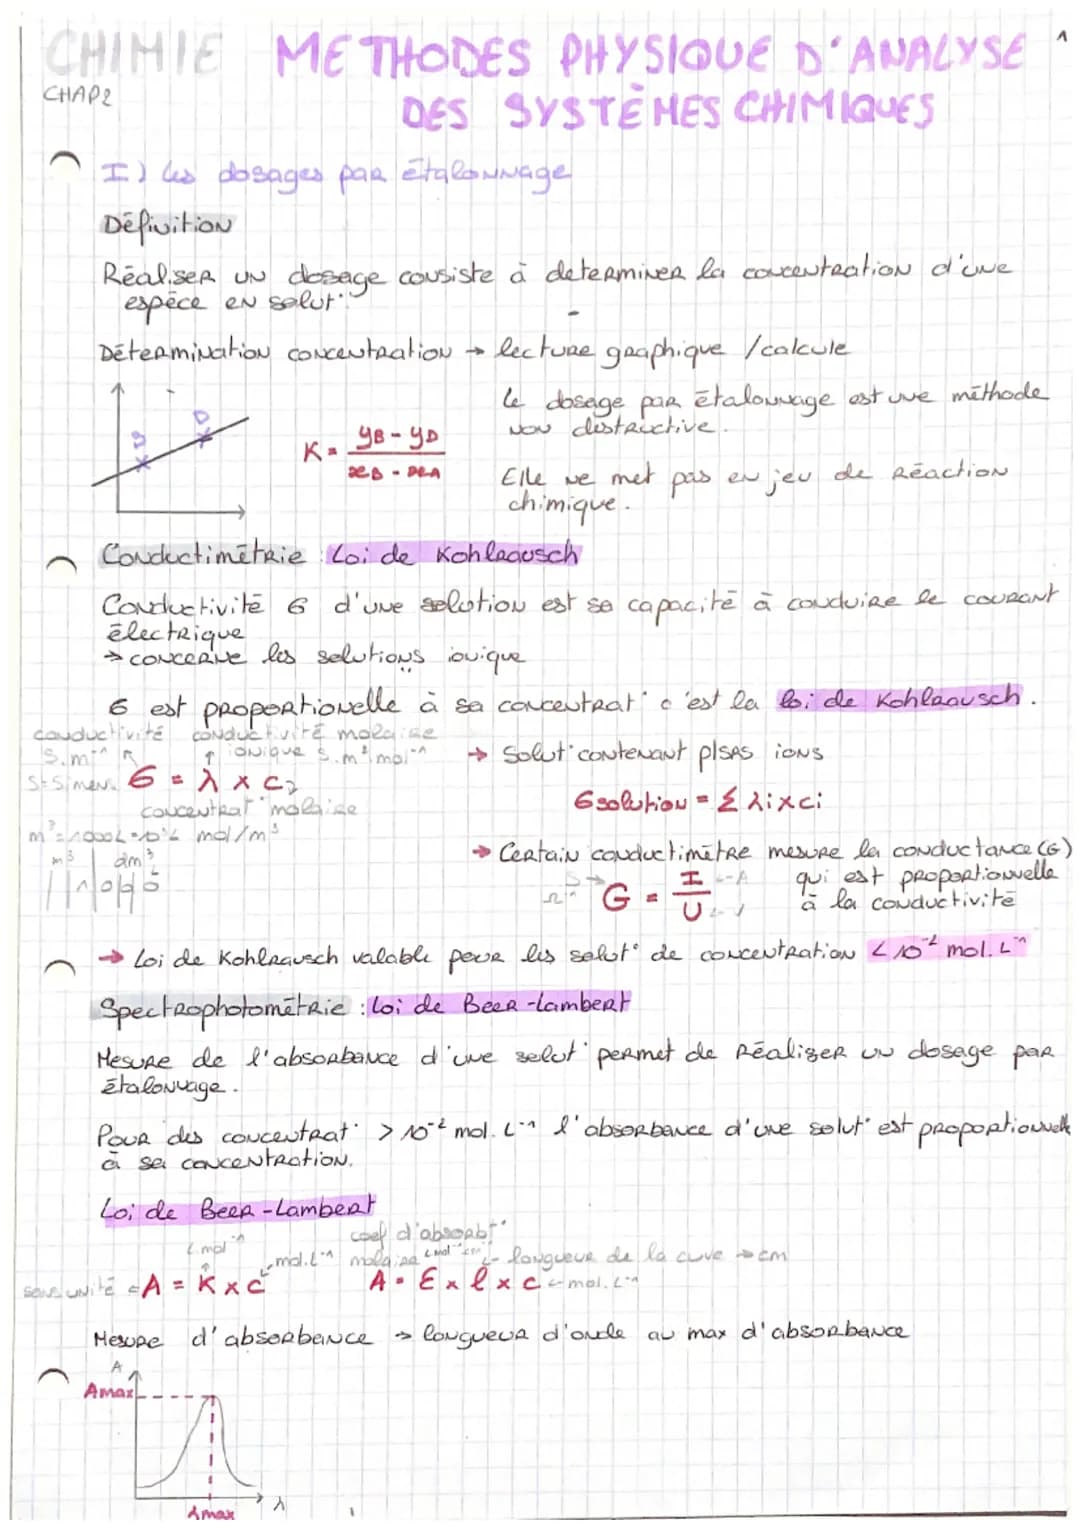 CHIMIE METHODES PHYSIQUE D'ANALYSE 1
CHAP2 DES SYSTÈMES CHIMIQUES
I) les dosages par étalonnage
Définition
Réaliser un dosage consiste à determiner la concentration d'une
espèce en solut°.
Détermination concentration → lecture graphique / calcule
B D
K = yB - yD / xB - xA
le dosage par étalonnage est une méthode
non destructive.
Elle ne met pas en jeu de réaction
chimique.
Conductimétrie : Loi de Kohlraousch
Conductivité σ d'une solution est sa capacité à conduire le courant
électrique
→ concerne les solutions ionique
σ est proportionelle à sa concentrat° c'est la loi de Kohlraousch.
conductivité conductivité molaire
S.m⁻¹ ionique S.m².mol⁻¹
S=Simens σ = λ x C
concentrat° molaire
m³=1000L=10³L mol/m³
m³ | dm³
1 0 0 0
→ Solut° contenant plsrs ions
σsolution = Σ λi x ci
→ Certain conductimètre mesure la conductance (G)
qui est proportionnelle
à la conductivité
S → Ω⁻¹ G = I / U ← A ← V
→ Loi de Kohlrausch valable pour les solut° de concentration < 10⁻² mol.L⁻¹
Spectrophotométrie : Loi de Beer-Lambert
Mesure de l'absorbance d'une solut° permet de réaliser un dosage par
étalonnage.
Pour des concentrat° > 10⁻² mol.L⁻¹ l'absorbance d'une solut° est proportionnelle
à sa concentration.
Loi de Beer-Lambert
L.mol⁻¹ coef d'absorbt°
mol.L⁻¹ molaire L.mol⁻¹.cm⁻¹ longueur de la cuve → cm
sans unité ← A = K x C A = Ɛ x l x c ← mol.L⁻¹
Mesure d'absorbance → longueur d'onde au max d'absorbance
A
Amax
λ
λmax